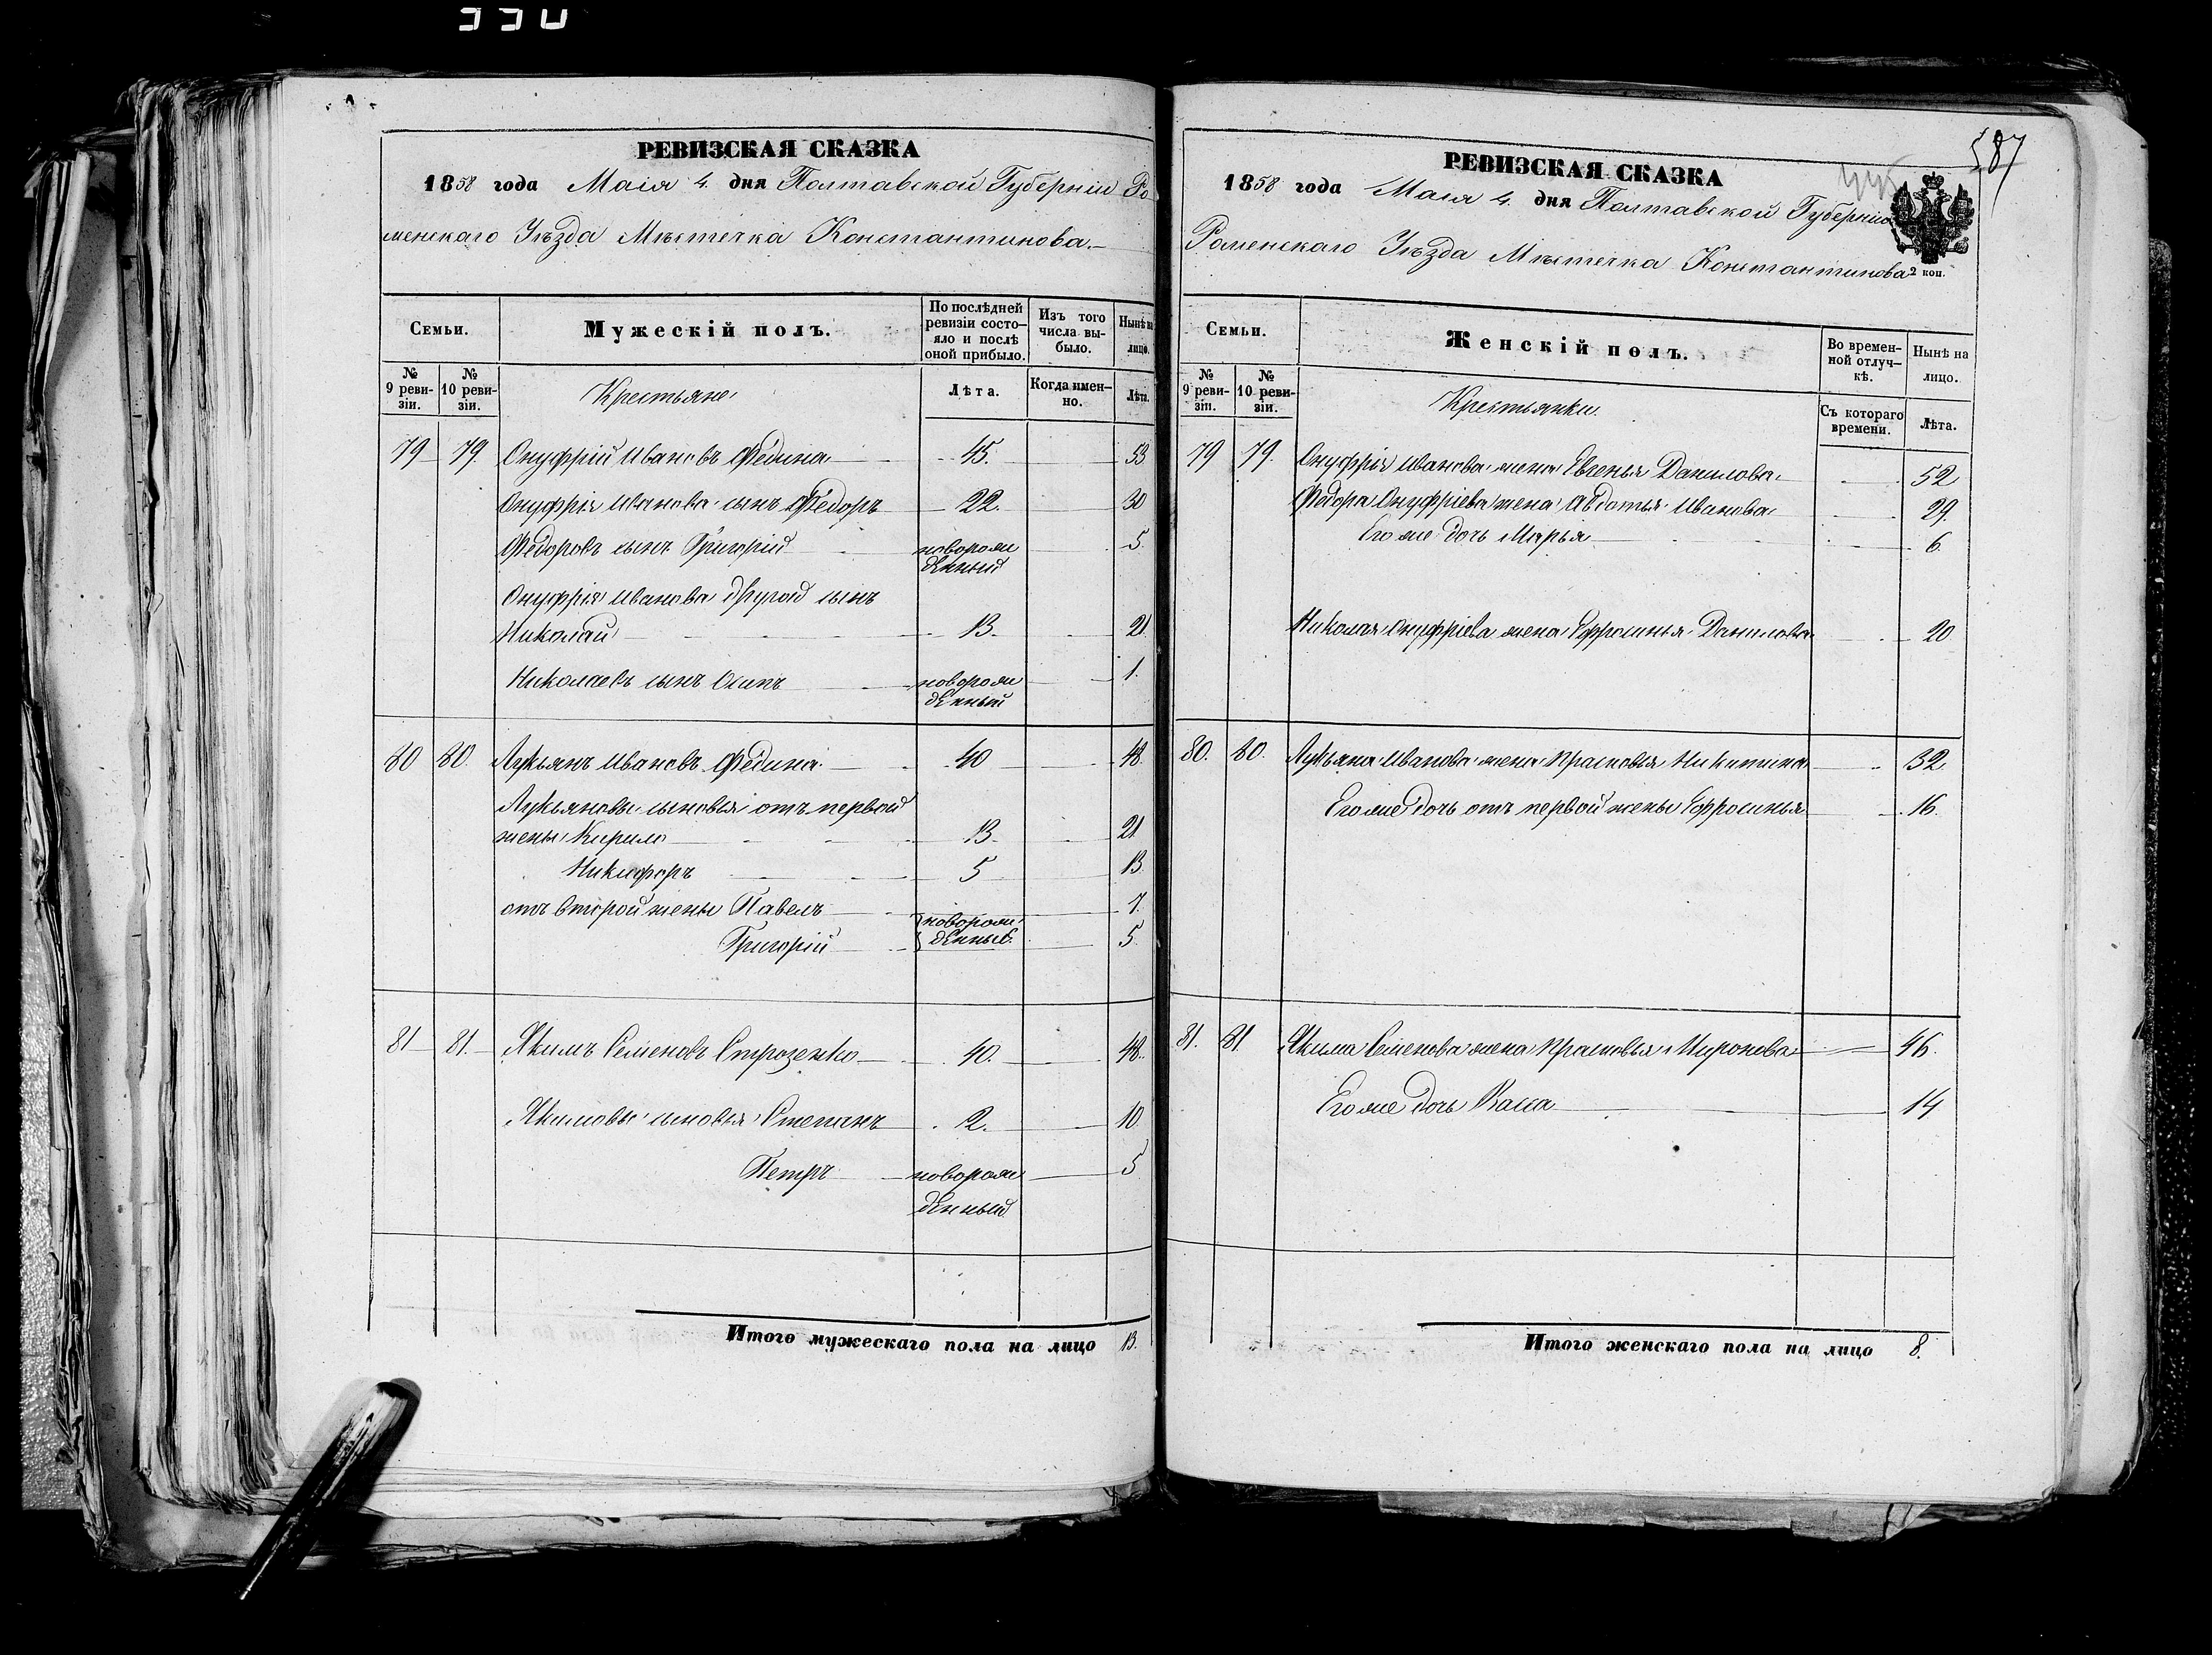 330
РЕВИЗСКАЯ СКАЗКА
1858 года Маія 4. дня Полтавской Губерніи Ро-
менскаго Уѣзда Мѣстечка Константинова.
Семьи.
Мужескій полъ.
По послѣдней ревизіи состо-яло и послѣ оной прибыло.
Изъ того числа вы-было.
Нынѣ на лицо.
№ 9 реви-зіи.
№ 10 реви-зіи.
Крестьяне
Лѣта.
Когда имен-но.
Лѣта.
79 79. Онуфрій Ивановъ Федина 45. 53
Онуфрія Иванова сынъ Федоръ 22. 30
Федоровъ сынъ Григорій новорож 5
денный
Онуфрія Иванова другой сынъ
Николай 13. 21
Николаевъ сынъ Осипъ новорож 1.
денный
80 80. Лукьянъ Ивановъ Федина 40 48
Лукьяновы сыновья отъ первой
жены Кирило 13. 21
Никифоръ 5 13
отъ второй жены Павелъ новорож 7.
Григорій денные 5
81 81. Якимъ Семеновъ Строзенко 40. 48.
Якимовы сыновья Степанъ 2. 10
Петръ новорож 5
денный
Итого мужескаго пола на лицо 13.
587
РЕВИЗСКАЯ СКАЗКА
1858 года Маія 4. дня Полтавской Губерніи
Роменскаго Уѣзда Мѣстечка Константинова
2 коп.
Семьи.
Женскій полъ.
Во времен-ной отлуч-кѣ.
Нынѣ на лицо.
№ 9 реви-зіи.
№ 10 реви-зіи.
Крестьянки.
Съ котораго времени.
Лѣта.
79 79. Онуфрія Иванова жена Евгенья Данилова 52
Федора Онуфріева жена Авдотья Иванова 29.
Его же дочь Марья 6
Николая Онуфріева жена Ефросинья Данилова 20
80. 80. Лукьяна Иванова жена Прасковья Никитина 32
Его же дочь отъ первой жены Ефросинья 16.
81. 81 Якима Семенова жена Прасковья Миронова 46.
Его же дочь Васса 14
Итого женскаго пола на лицо 8.